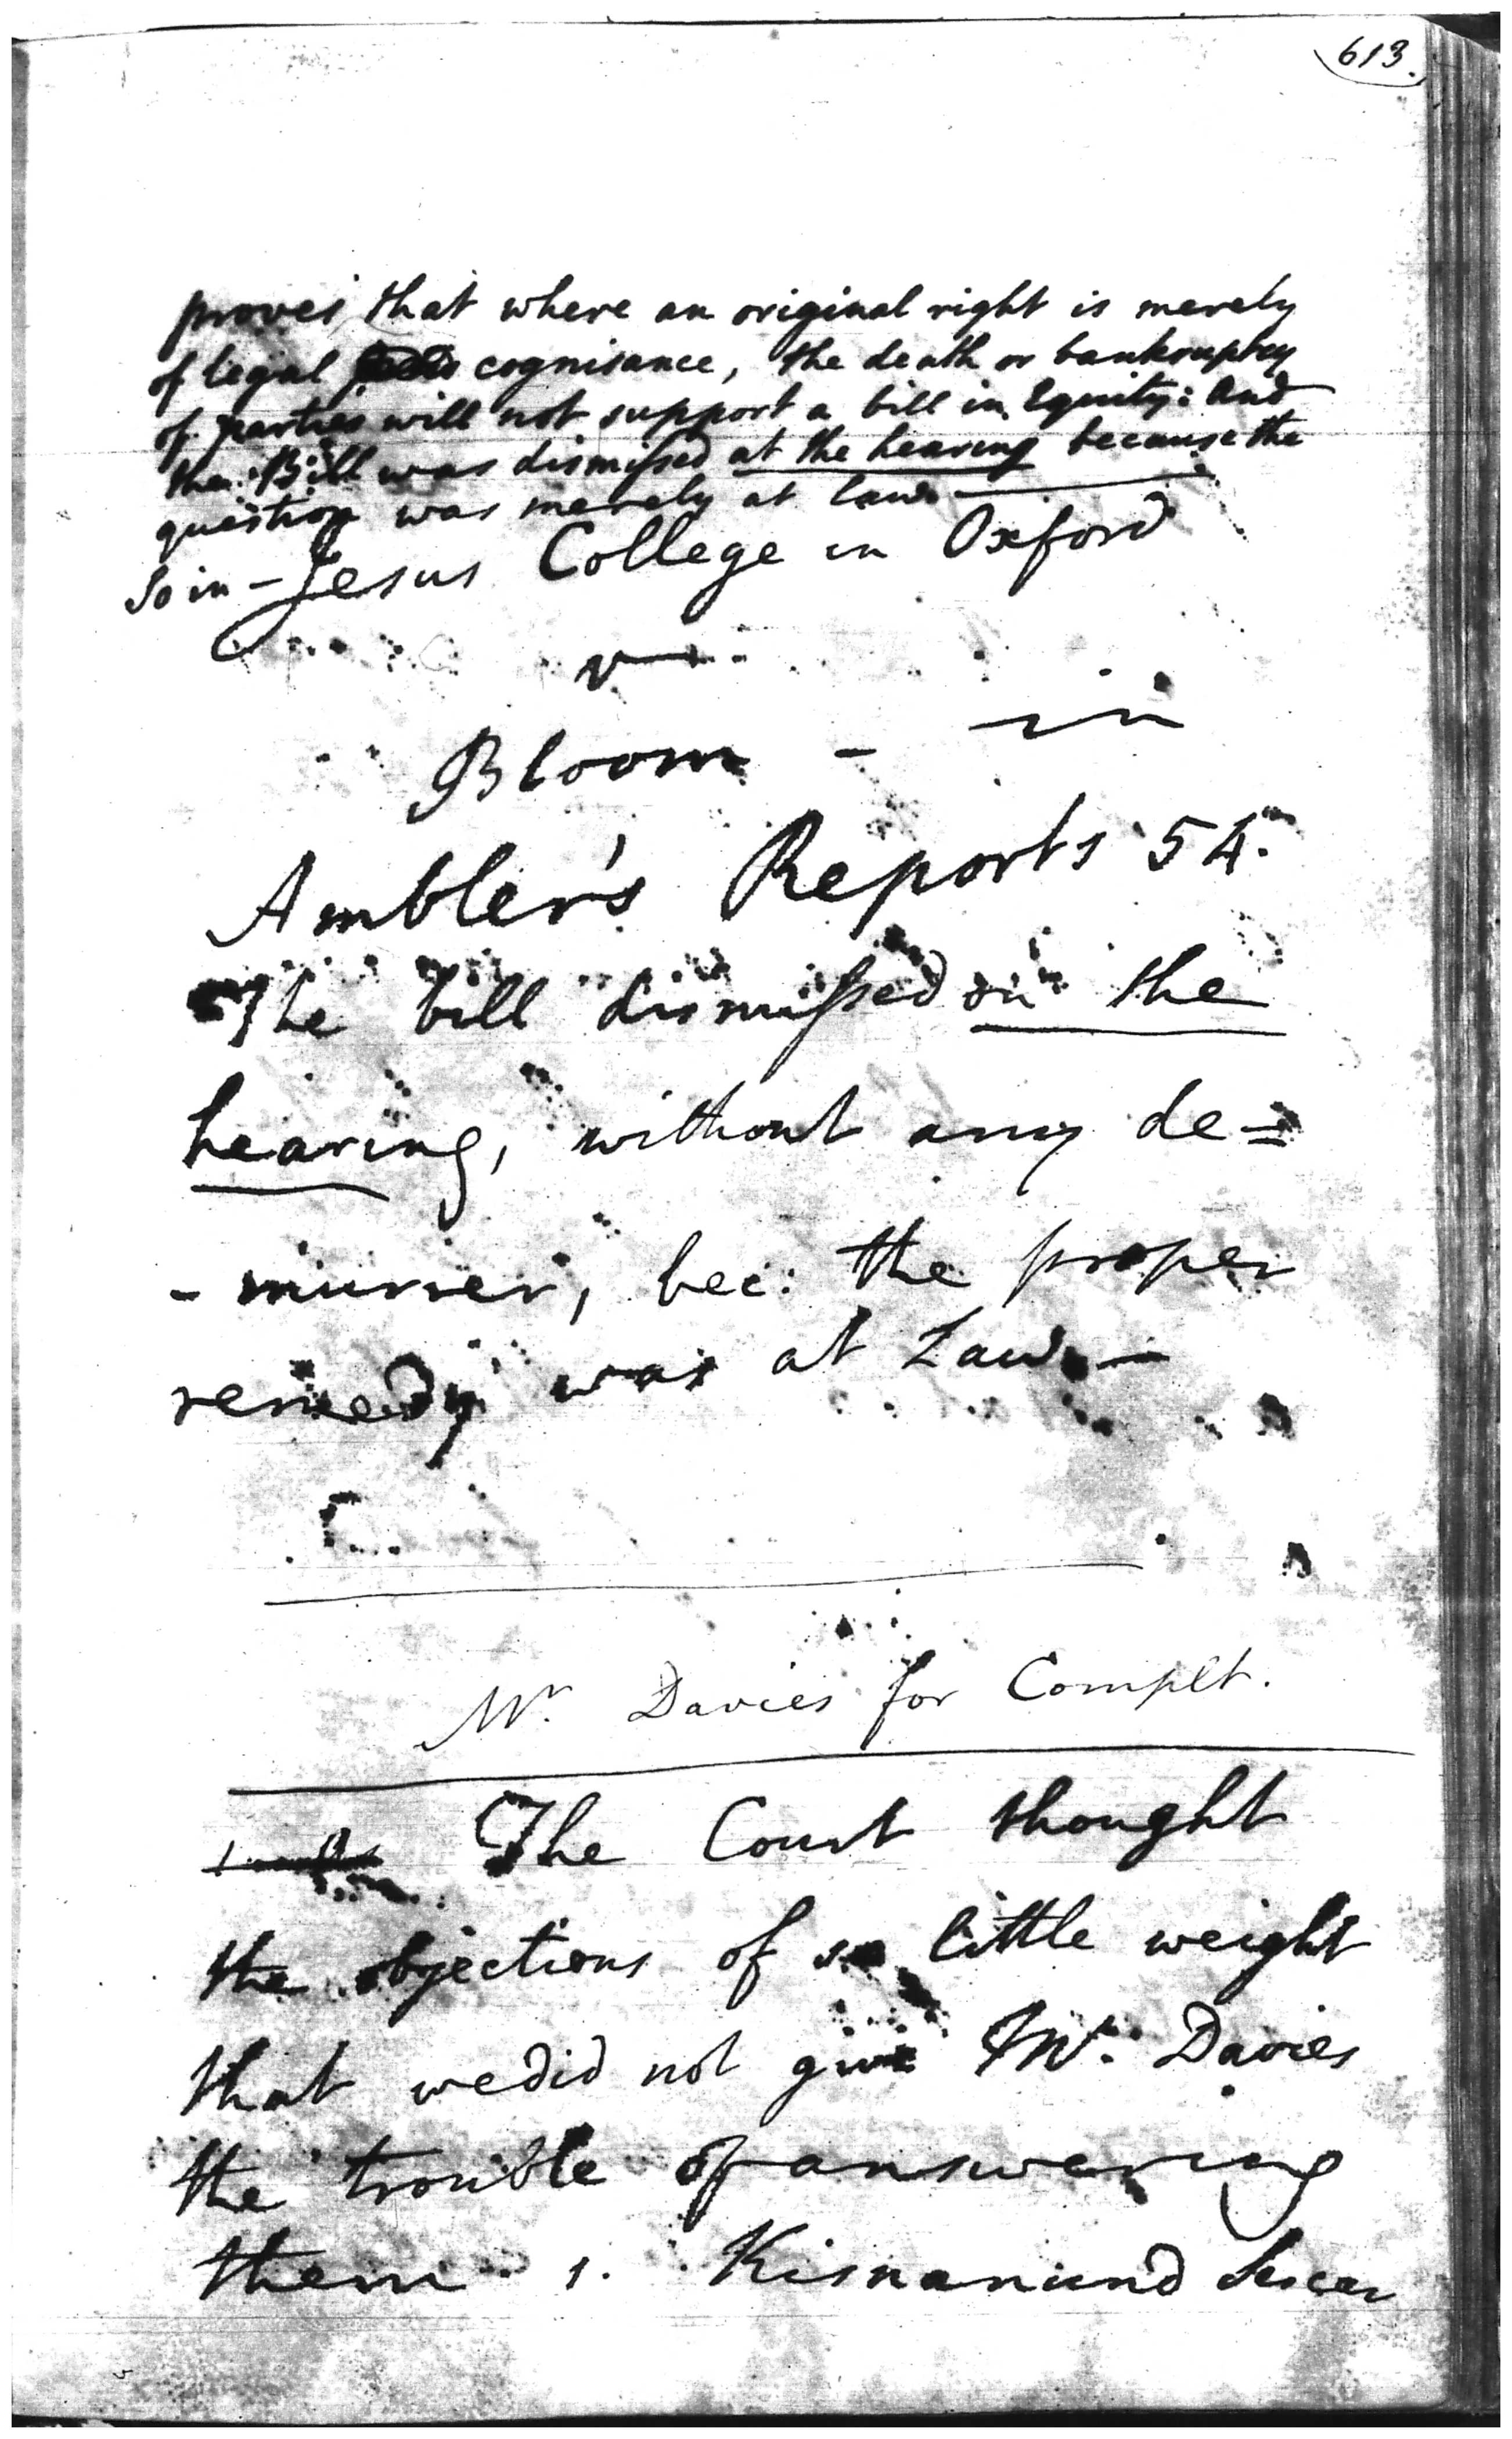 613.
proves that where an original right is merely
of legal cognisance, the death or bankruptcy
of parties will not support a bill in Equity: and
the Bill was dismissed at the hearing because the
question was merely at law —
So in - Jesus College in Oxford
v —
Bloom - in
Ambler's Reports 54.
The bill dismissed on the
hearing, without any de=
- murrer, bec: the proper
remedy was at Law. —
Mr. Davies for Complt.
The Court thought
the objections of so little weight
that we did not give Mr. Davies
the trouble of answering
them 1. Kisnanund